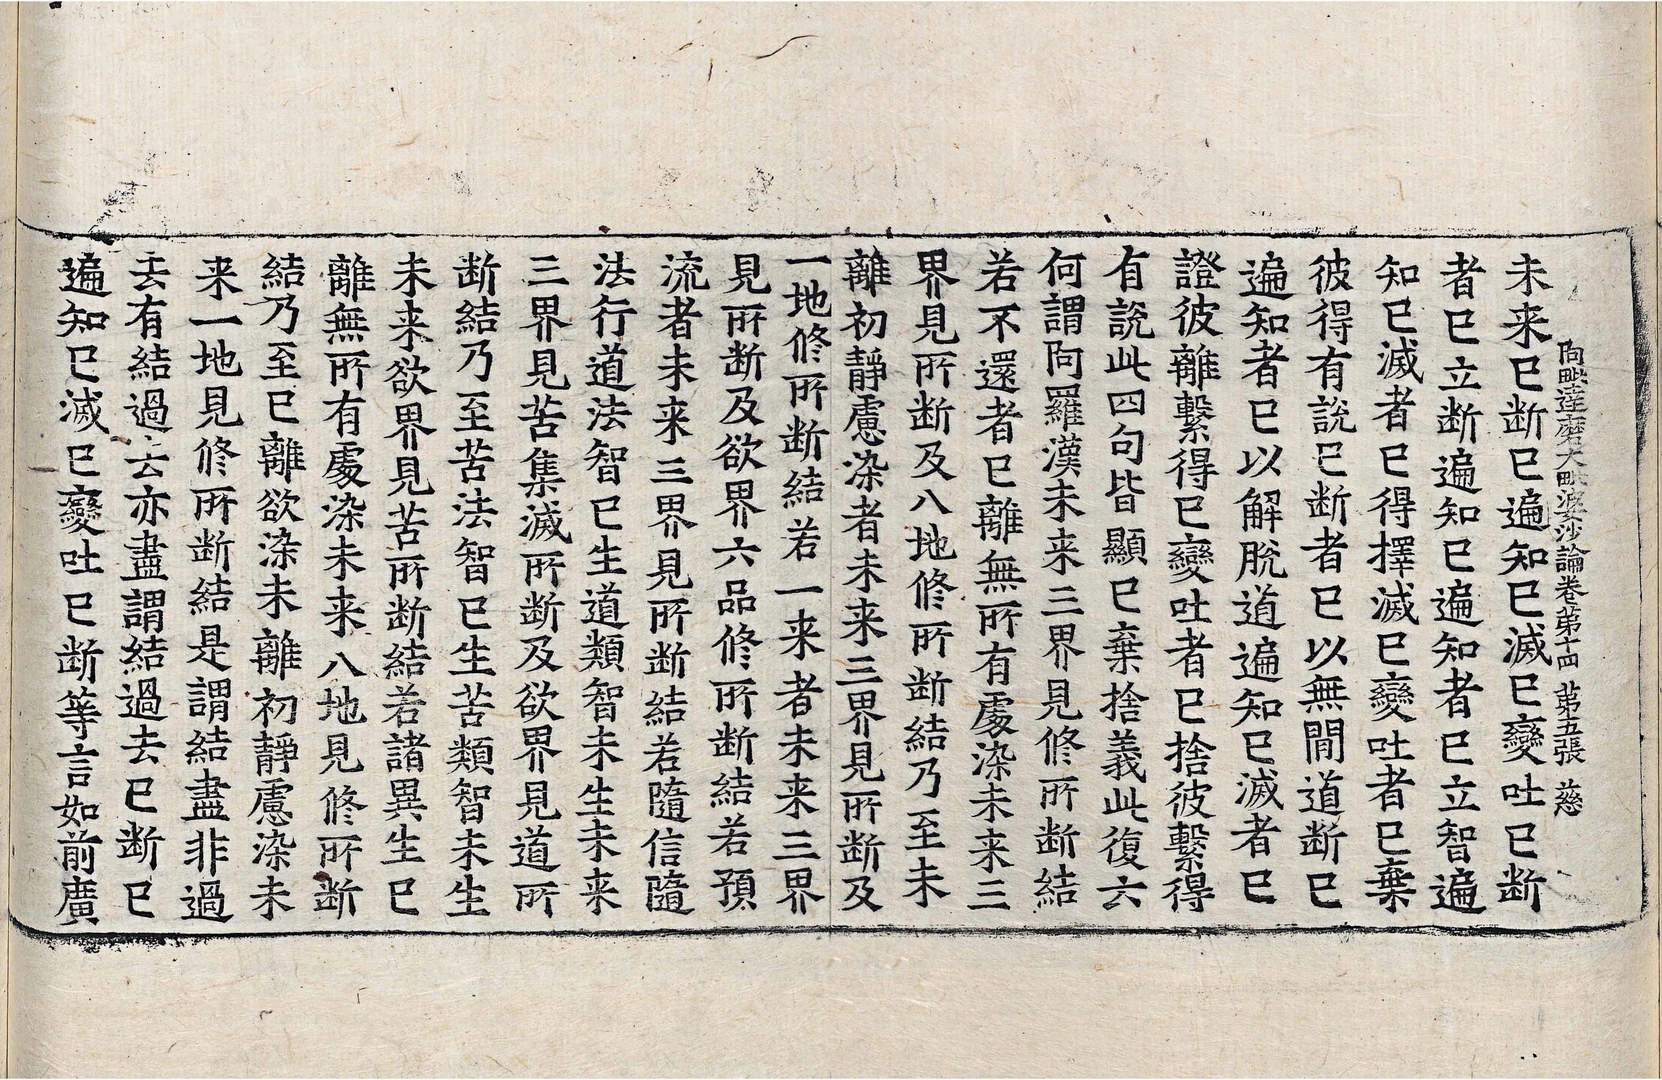 阿毗達磨大毗婆沙論卷第十四 第五張 慈
未来已断已遍知已滅已變吐已断
者已立断遍知已遍知者已立智遍
知已滅者已得擇滅已變吐者已棄
彼得有說已断者已以無間道断已
遍知者已以解脫道遍知已滅者已
證彼離繫得已變吐者已捨彼繫得
有說此四句皆顯已棄捨義此復六
何謂阿羅漢未来三界見修所断結
若不還者已離無所有處染未来三
界見所断及八地修所断結乃至未
離初靜慮染者未来三界見所断及
一地修所断結若一来者未来三界
見所断及欲界六品修所断結若預
流者未来三界見所断結若隨信隨
法行道法智已生道類智未生未来
三界見苦集滅所断及欲界見道所
断結乃至苦法智已生苦類智未生
未来欲界見苦所断結若諸異生已
離無所有處染未来八地見修所断
結乃至已離欲染未離初靜慮染未
来一地見修所断結是謂結盡非過
去有結過去亦盡謂結過去已断已
遍知已滅已變吐已断等言如前廣